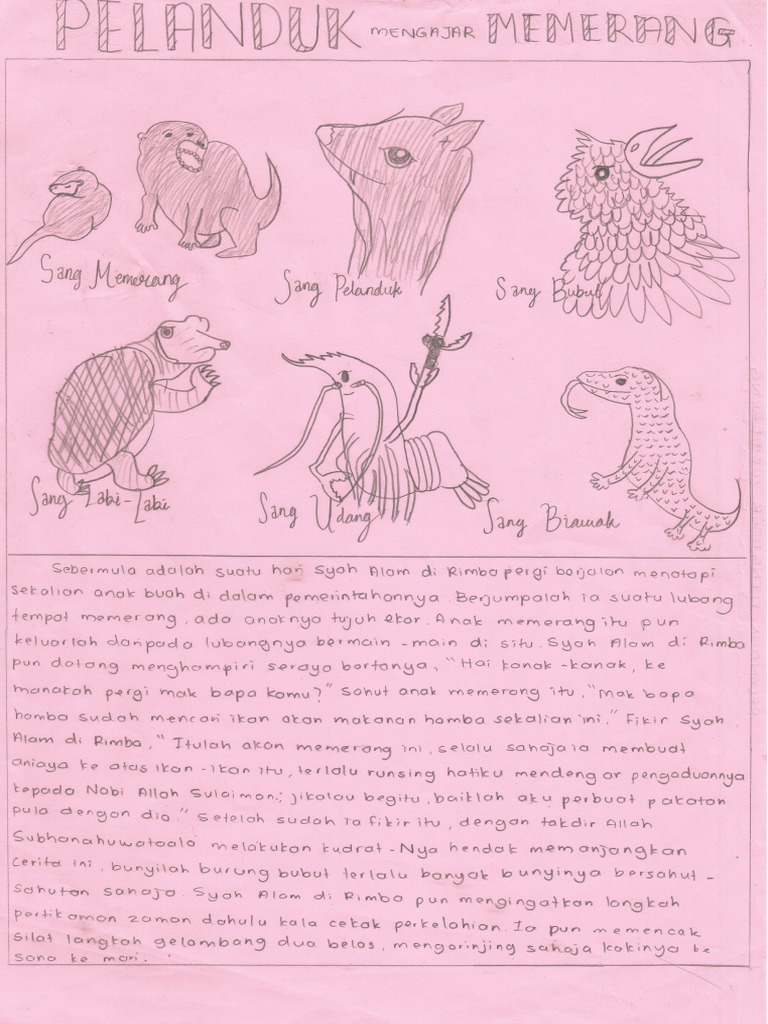 PELANDUK MENGAJAR MEMERANG
Sang Memerang
Sang Pelanduk
Sang Bubut
Sang Labi-Labi
Sang Udang
Sang Biawak
Sebermula adalah suatu hari Syah Alam di Rimba pergi berjalan menatapi
sekalian anak buah di dalam pemerintahannya. Berjumpalah ia suatu lubang
tempat memerang, ada anaknya tujuh ekor. Anak memerang itu pun
keluarlah daripada lubangnya bermain-main di situ. Syah Alam di Rimba
pun datang menghampiri seraya bertanya, "Hai kanak-kanak, ke
manakah pergi mak bapa kamu?" Sahut anak memerang itu, "Mak bapa
hamba sudah mencari ikan akan makanan hamba sekalian ini." Fikir Syah
Alam di Rimba, "Itulah akan memerang ini, selalu sahaja ia membuat
aniaya ke atas ikan-ikan itu, terlalu runsing hatiku mendengar pengaduannya
kepada Nabi Allah Sulaiman; jikalau begitu, baiklah aku perbuat pakatan
pula dengan dia." Setelah sudah ia fikir itu, dengan takdir Allah
Subhanahuwataala melakukan kudrat-Nya hendak memanjangkan
cerita ini, bunyilah burung bubut terlalu banyak bunyinya bersahut-
sahutan sahaja. Syah Alam di Rimba pun mengingatkan langkah
pertikaman zaman dahulu kala cekak perkelahian. Ia pun memencak
silat langkah gelombang dua belas, mengarinjing sahaja kakinya ke
sana ke mari.